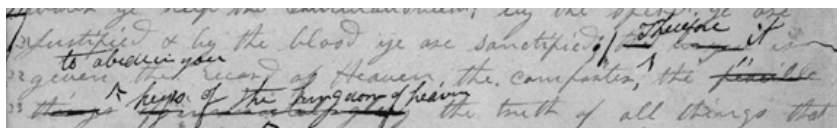 ye keep the commandment; by the spirit ye are
justified & by the blood ye are sanctified; Therefore it is
to abide in you
given the record of Heaven, the comforter, the
keys of the kingdom of heaven
things the truth of all things that